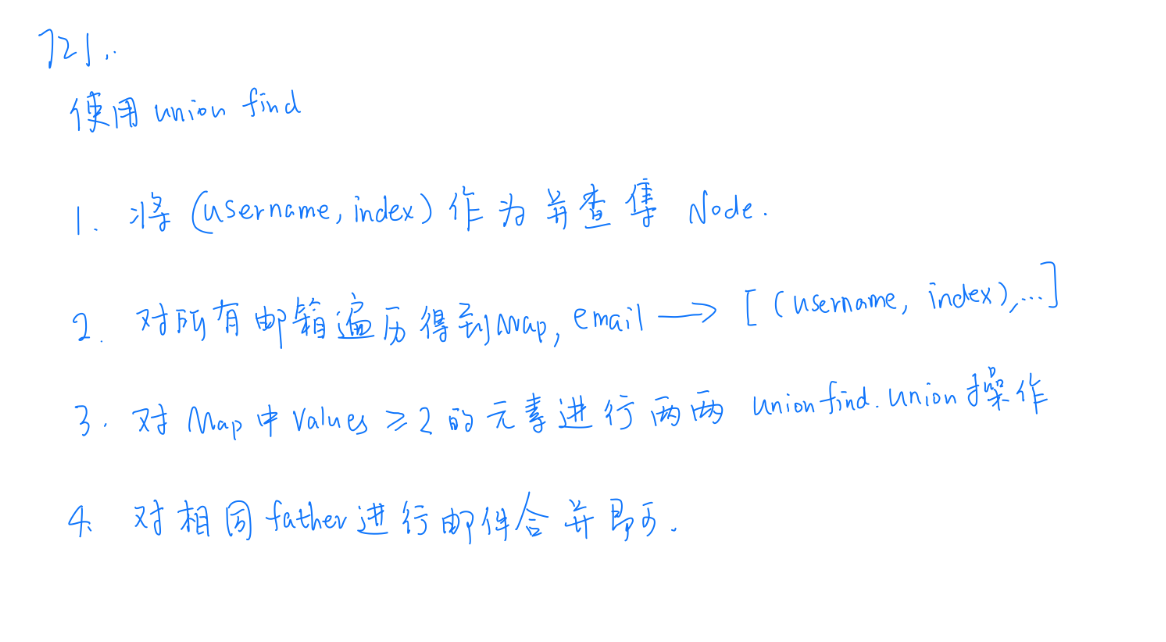 721.
使用 union find
1. 将 (username, index) 作为并查集 Node.
2. 对所有邮箱遍历得到 Map, email → [(username, index),...]
3. 对 Map 中 Values ≥ 2 的元素进行两两 unionfind.union 操作
4. 对相同 father 进行邮件合并即可.